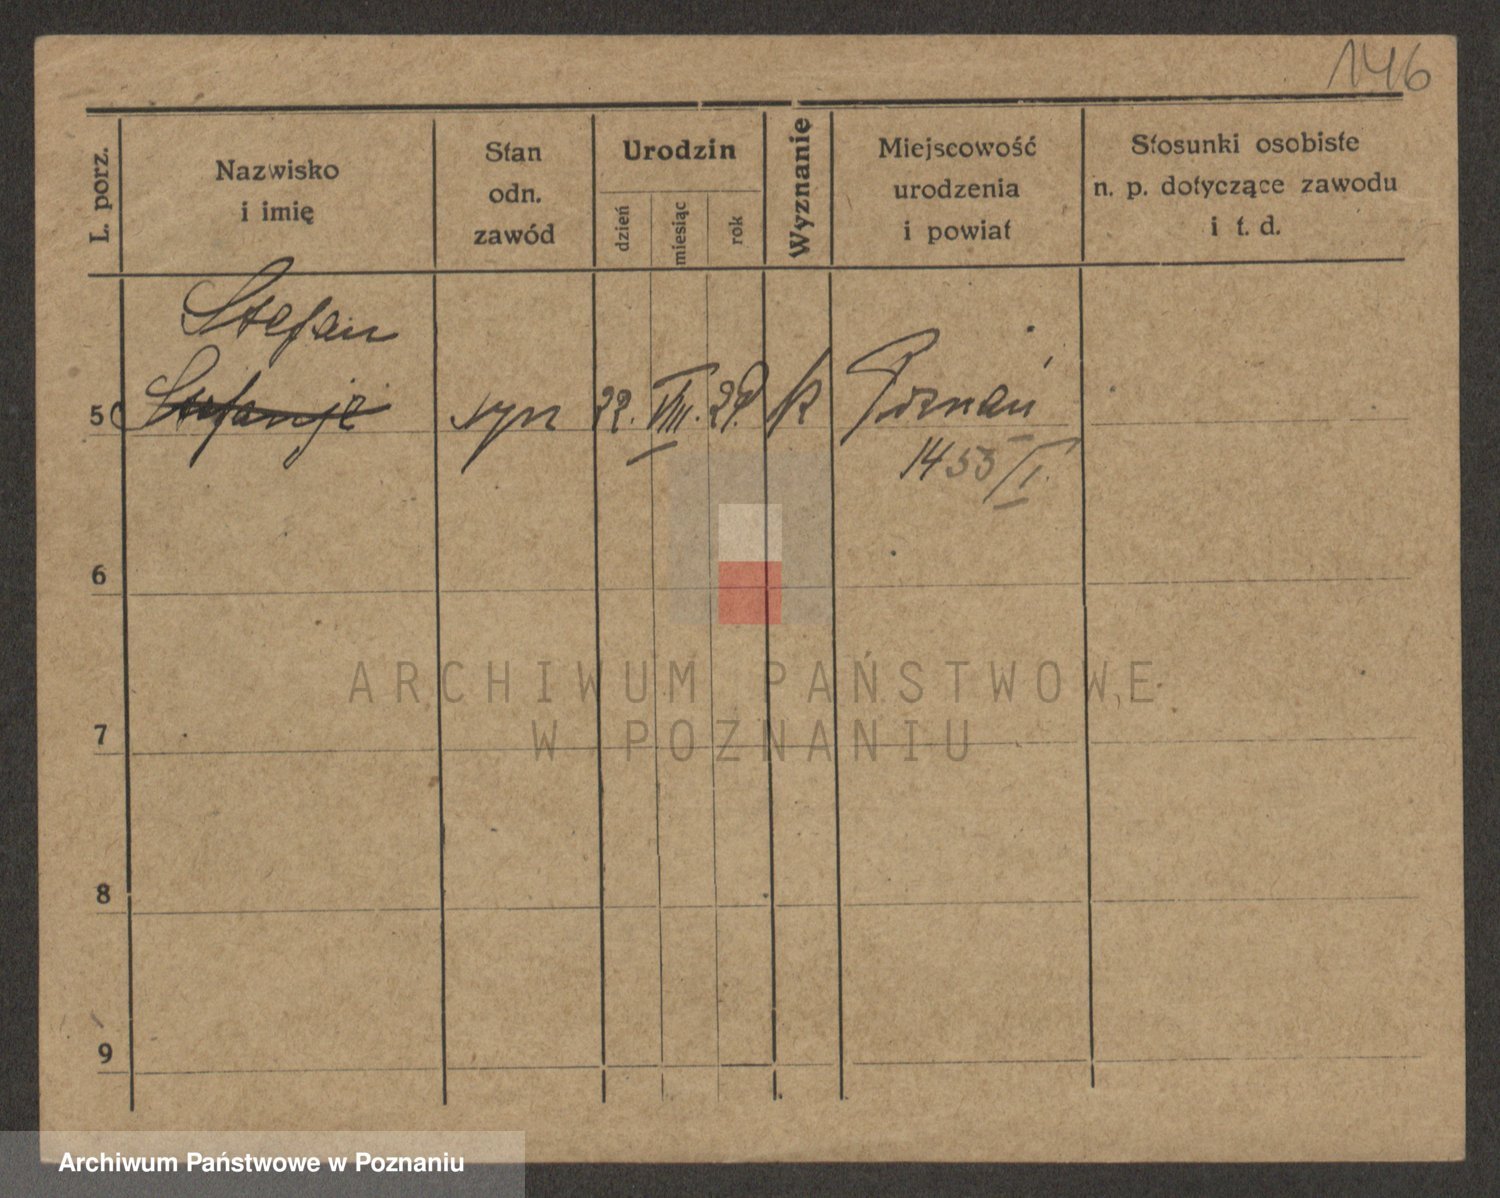 146
L. porz.
Nazwisko
i imię
Stan
odn.
zawód
Urodzin
dzień
miesiąc
rok
Wyznanie
Miejscowość
urodzenia
i powiat
Stosunki osobiste
n. p. dotyczące zawodu
i t. d.
Stefan
5 syn 22. VIII. k Poznań
1453/I.
6
7
8
9
ARCHIWUM PAŃSTWOWE
W POZNANIU
Archiwum Państwowe w Poznaniu